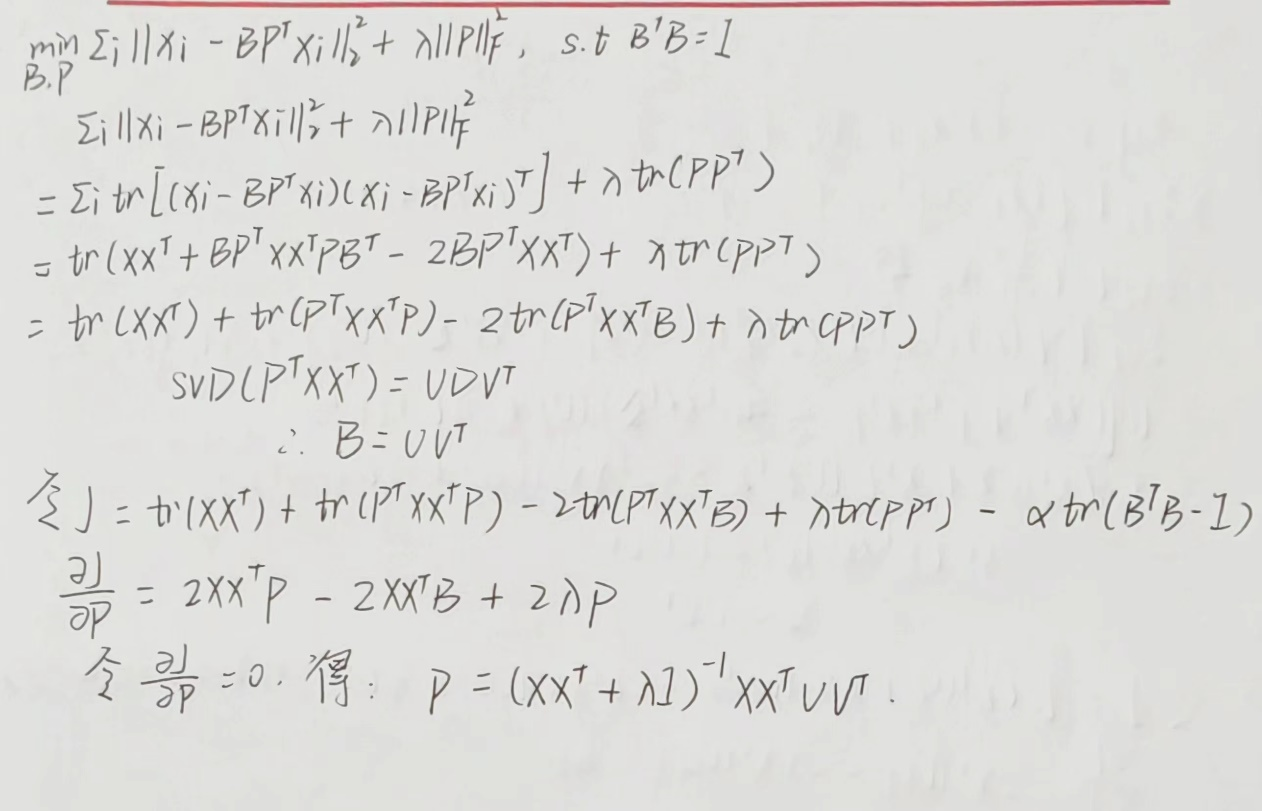 min Σi||Xi - BPᵀXi||₂² + λ||P||F², s.t B'B=I
B.P
Σi||Xi - BPᵀXi||₂² + λ||P||F²
= Σi tr[(Xi - BPᵀXi)(Xi - BPᵀXi)ᵀ] + λtr(PPᵀ)
= tr(XXᵀ + BPᵀXXᵀPBᵀ - 2BPᵀXXᵀ) + λtr(PPᵀ)
= tr(XXᵀ) + tr(PᵀXXᵀP) - 2tr(PᵀXXᵀB) + λtr(PPᵀ)
SVD(PᵀXXᵀ) = UDVᵀ
∴ B = UVᵀ
令J = tr(XXᵀ) + tr(PᵀXXᵀP) - 2tr(PᵀXXᵀB) + λtr(PPᵀ) - αtr(BᵀB-I)
∂J/∂P = 2XXᵀP - 2XXᵀB + 2λP
令 ∂J/∂P = 0. 得: P = (XXᵀ + λI)⁻¹XXᵀUVᵀ.